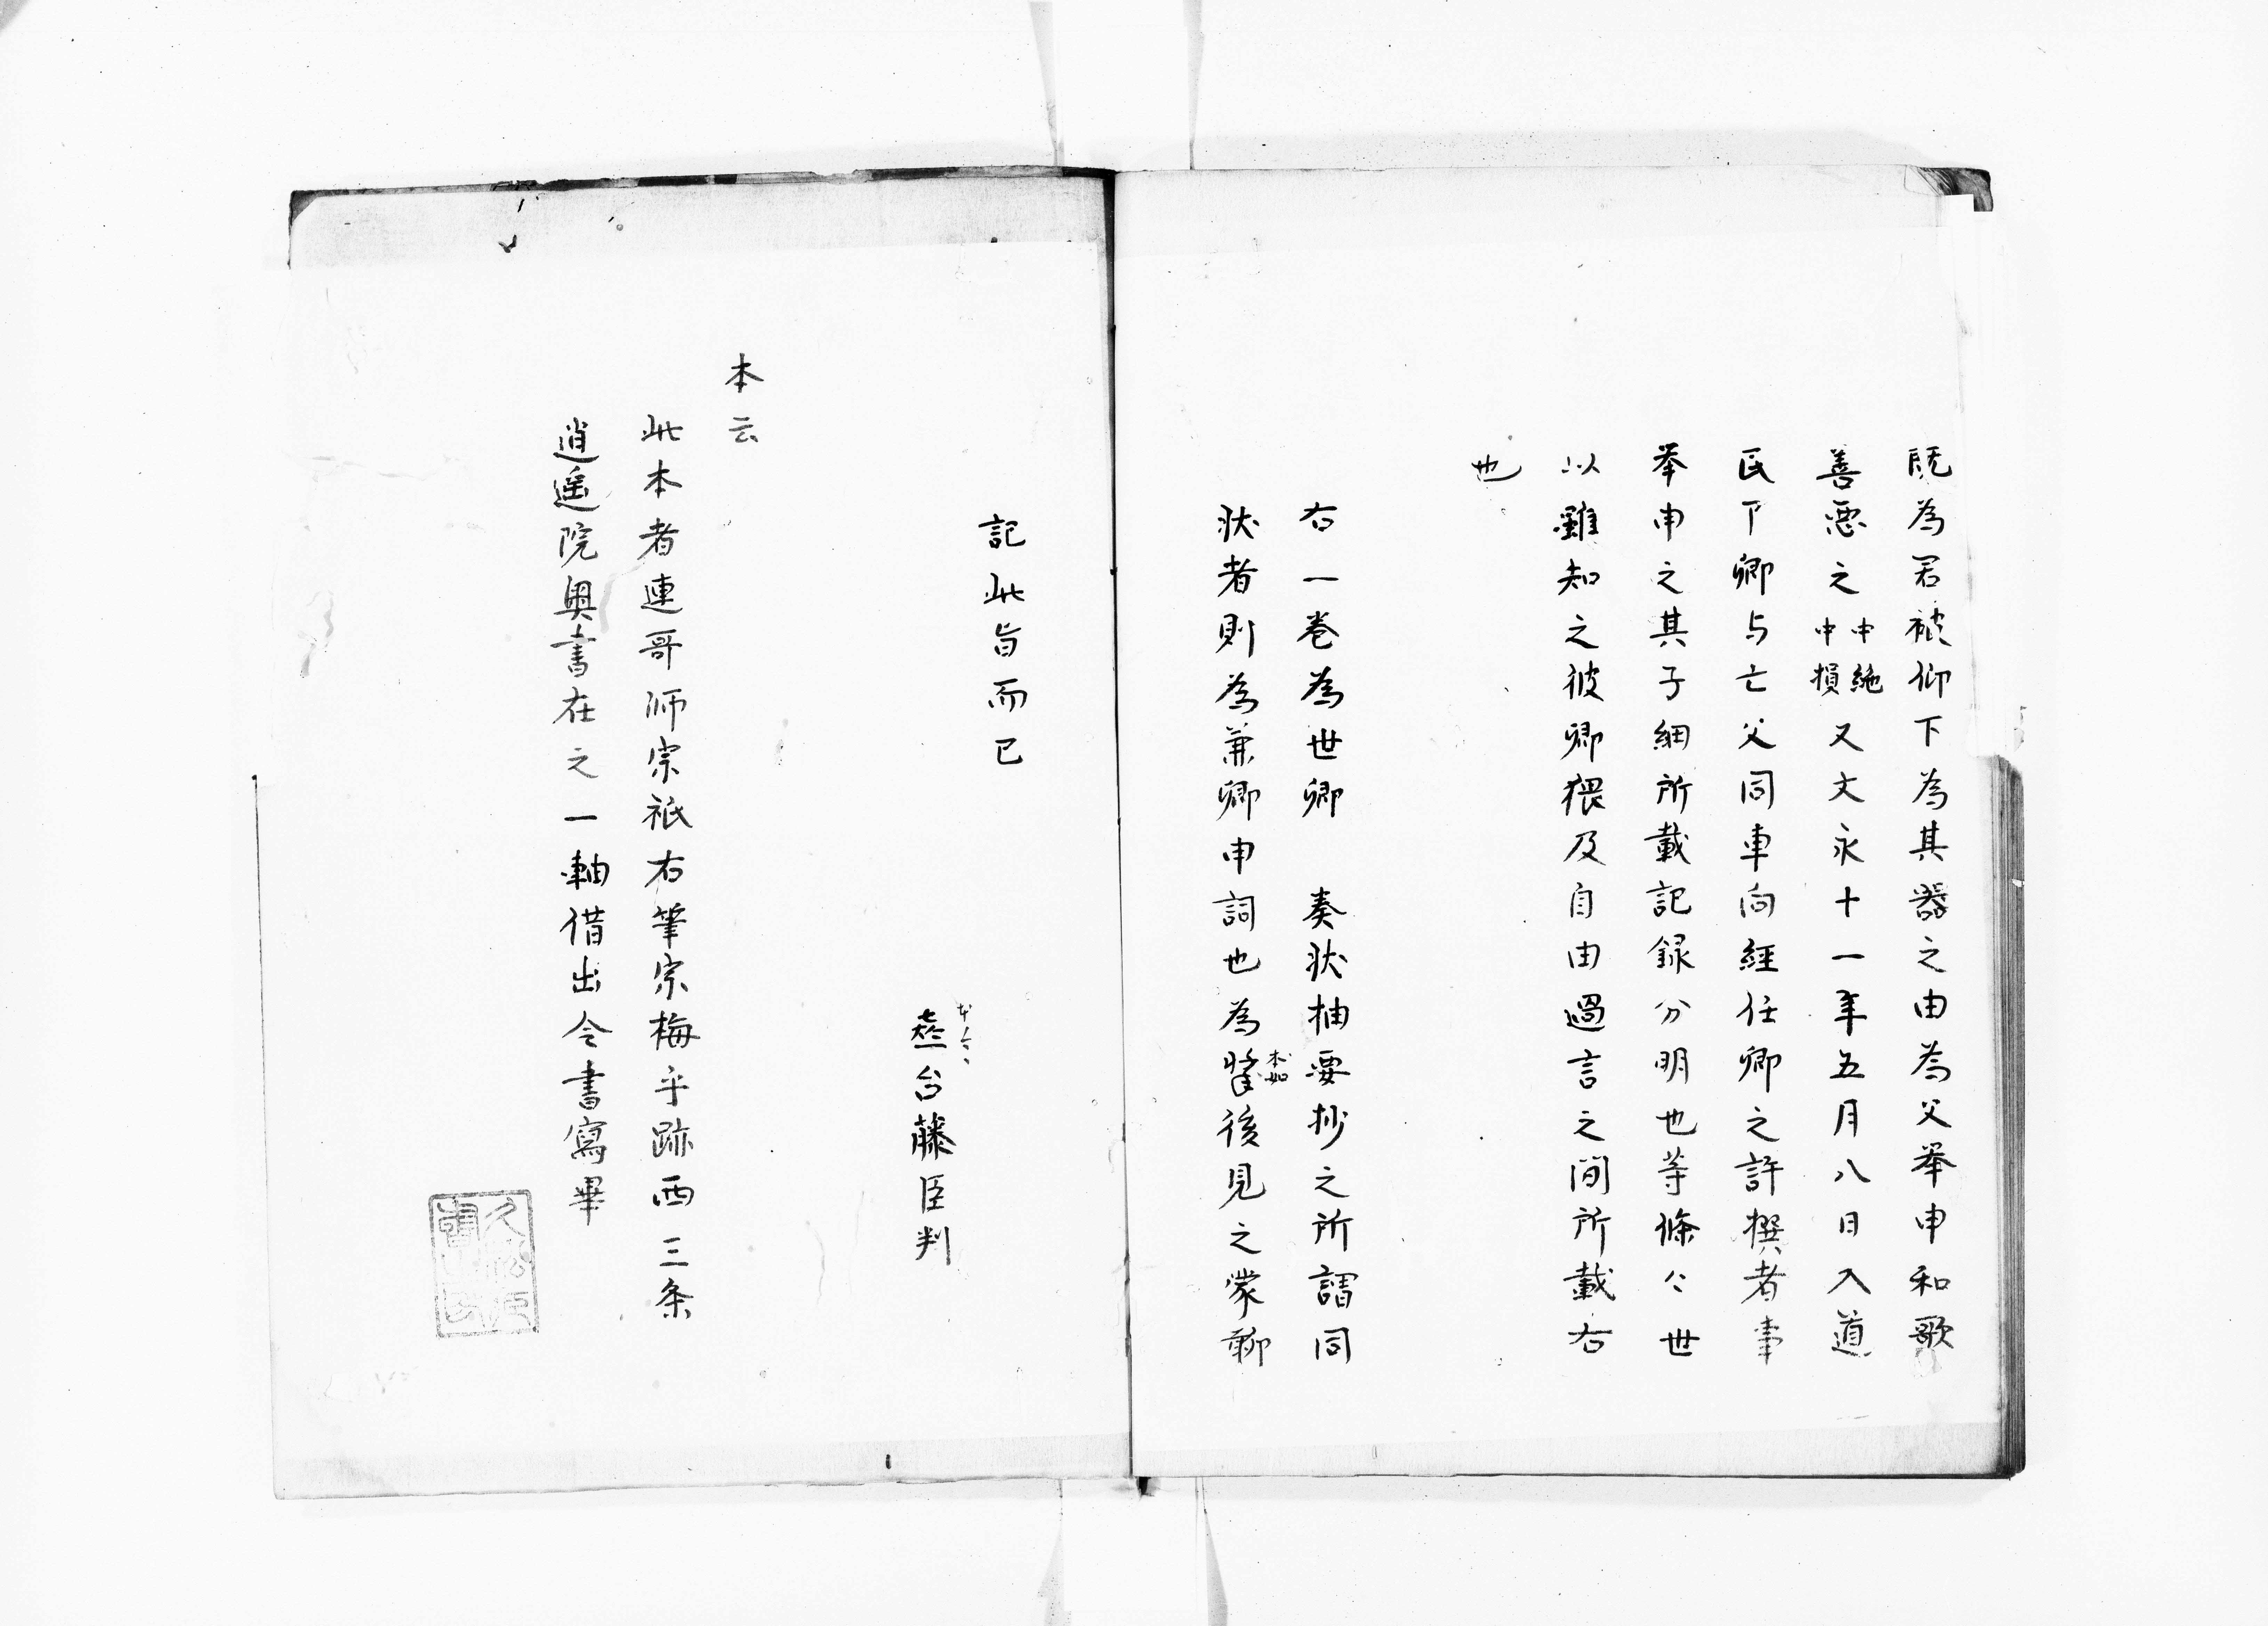 既為君被仰下為其器之由為父挙申和歌
善悪之中絶中損又文永十一年五月八日入道
民ア卿与亡父同車向經任卿之許撰者事
挙申之其子細所載記録分明也等條々世
以雖知之彼卿猥及自由過言之間所載右
也
右一巻為世卿　奏状抽要抄之所謂同
状者則為兼卿申詞也為後見之蒙聊
本如
記此旨而已
台藤臣判
本云
此本者連哥師宗祇右筆宗梅手跡西三条
逍遥院奥書在之一軸借出令書寫畢